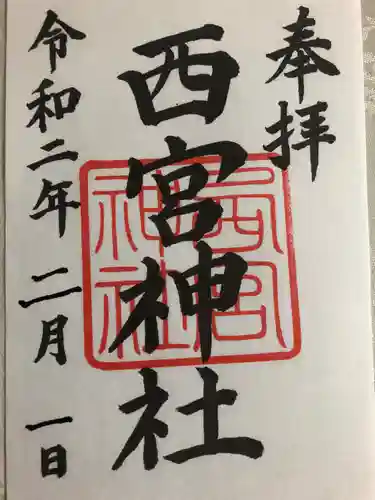 奉拝
西宮神社
西宮神社
令和二年二月一日